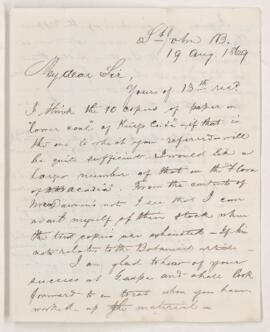 St John NB.
19 Aug. 1869
My dear Sir,
Yours of 13th recd
I think the 10 copies of paper on
"lower coal" of Kings Co. if that is
the one to which you referred will
be quite sufficient. I would like a
larger number of that on the Flora
of Acadia. From the contents of
Mr Dawson's note I see that I can
avail myself of their stock when
the ten copies are exhausted - if his
note relates to the Botanical article
I am glad to hear of your
success at Gaspe and shall look
forward to a treat when you have
worked up the material -